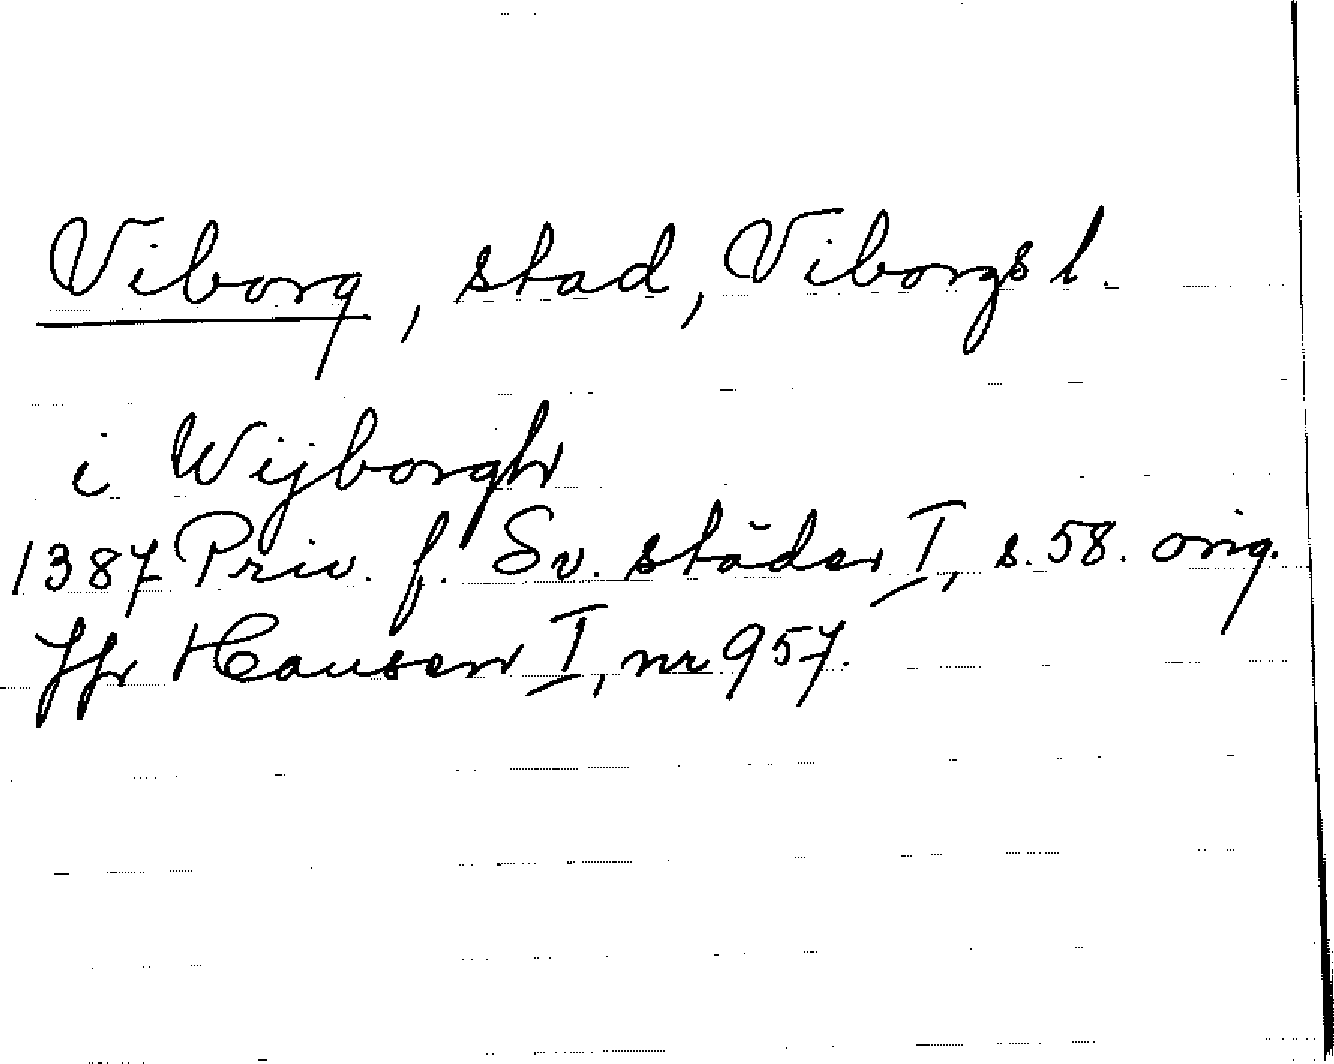 Viborg, stad, Viborgs l.
i Wijborgh
1387 Priv. f. Sv. städer I, s. 58. orig.
Jfr Hausen I, nr 957.